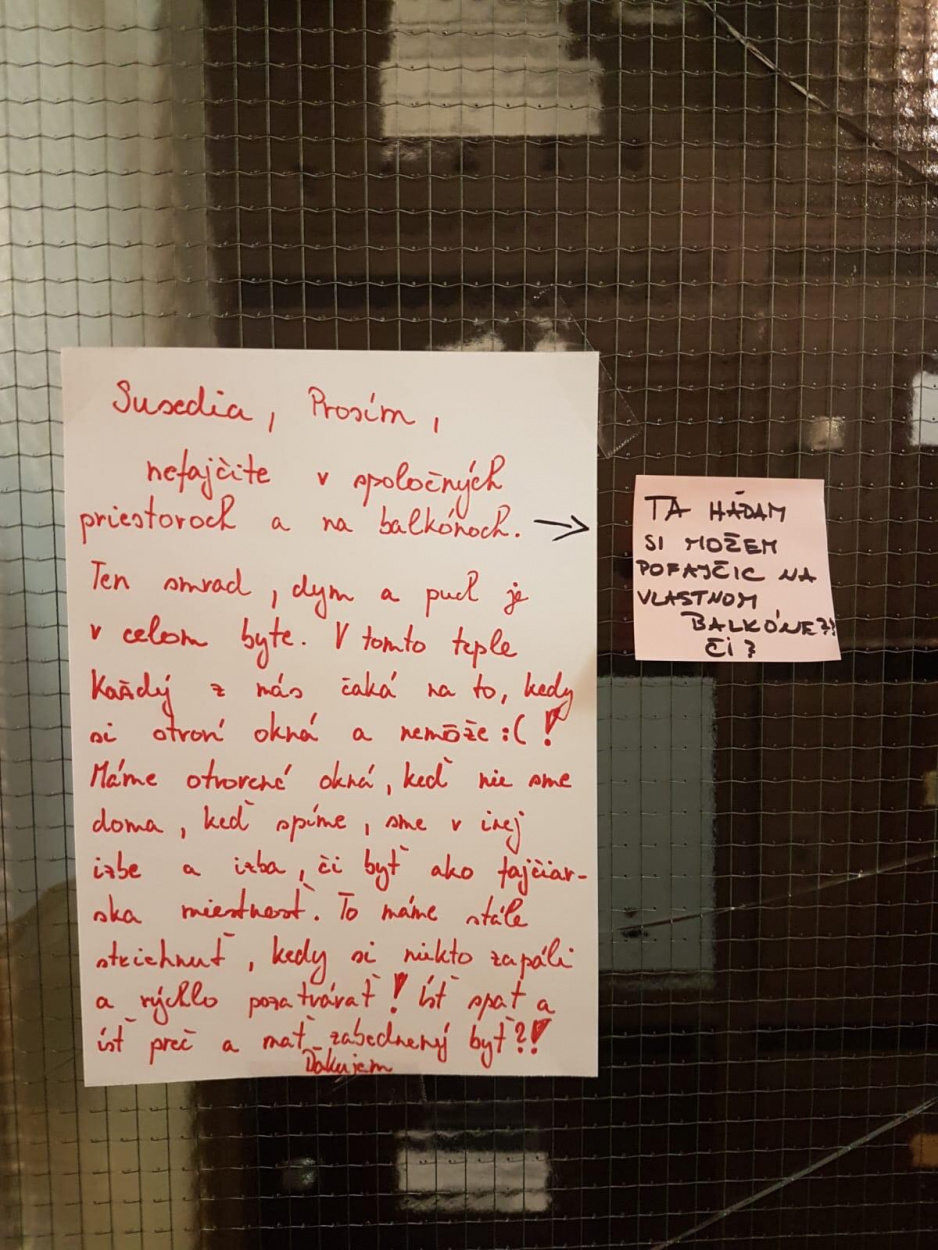 Susedia, Prosím,
nefajčite v spoločných
priestoroch a na balkónoch. →
Ten smrad, dym a puch je
v celom byte. V tomto teple
Každý z nás čaká na to, kedy
si otvorí okná a nemôže :( !
Máme otvorené okná, keď nie sme
doma, keď spíme, sme v inej
izbe a izba, či byť ako fajčiar-
ska miestnosť. To máme stále
striehnuť, kedy si niekto zapáli
a rýchlo pozatvárať! Ísť spať a
ísť preč a mať zabednený byt?!
Ďakujem
TA HÁDAM
SI MOŽEM
POFAJČIC NA
VLASTNOM
BALKÓNE?!
ČI?